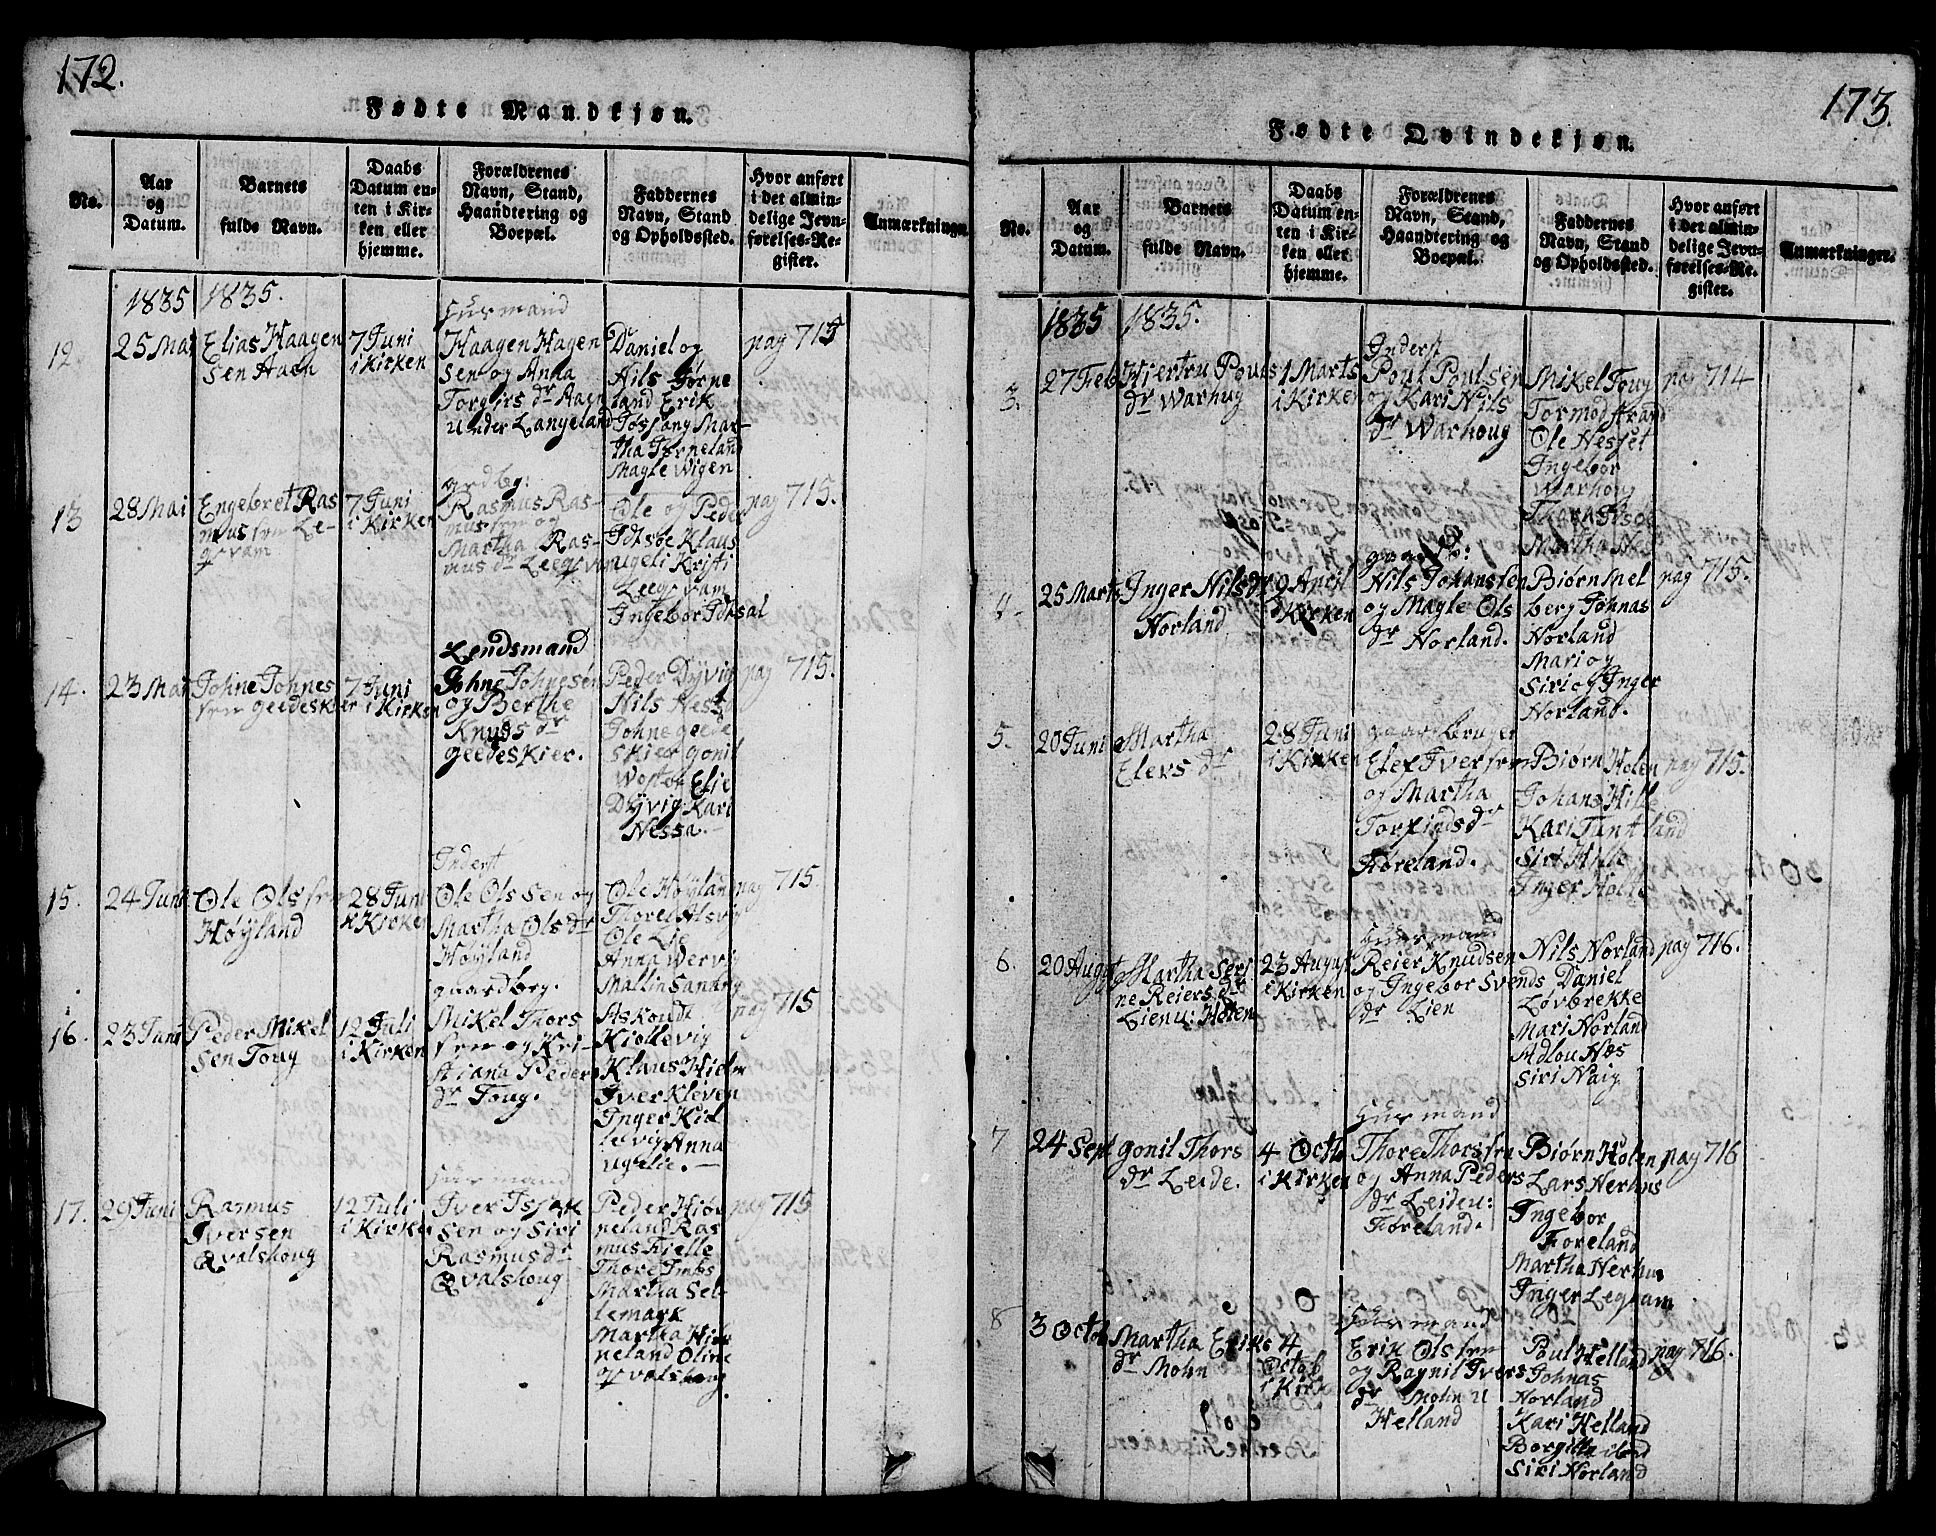 172.
Fødte Mandkjøn.
No.
Aar
og
Datum.
Barnets
fulde Navn.
Daabs
Datum en-
ten i Kir-
ken eller
hjemme.
Forældrenes
Navn, Stand,
Haandtering og
Boepæl.
Faddernes
Navn, Stand
og Opholdssted.
Hvor anført
i det almin-
delige Jevn-
førelses-Re-
gister.
Anmærkninger.
1835
1835.
12
25 Mai
Elias Haagen
sen Aasn
7 Juni
i Kirken
Huusmand
Haagen Hagen
sen og Anna
Torgiirs dr Aasn
under Langeland
Daniel og
Nils Førne
land Erik
Fossang Mar-
tha Førneland
Magle Wigen
pag 715
13
28 Mai
Engebret Ras
mussen Le-
qvam
7 Juni
i Kirken
grdbg:
Rasmus Ras-
mussen og
Martha Ras-
mus dr Leeqvam
Ole og Peder
Idsøe Klaus
ugeli Kristi
Leeqvam
Ingebor Idsal
pag 715.
14.
23 Mai
Johne Johnes
sen Geedeskier
7 Juni
i Kirken
Lendsmand
Johne Johnesen
og Berthe
Knuds dr
Geedeskier.
Peder Dÿvig
Nils Nessa
Johne Geede
skier Gonil
Wostøe Elie
Dÿvig Kari
Nessa.
pag 715.
15.
24 Juni
Ole Olssen
Høÿland
28 Juni
i Kirken
Inderst
Ole Olssen og
Martha Ols dr
Høÿland
Ole Høÿland
Thore Alsvig
Ole Lie
Anna Wervig
Mallin Sandvig
pag 715.
16.
23 Juni
Peder Mikel
sen Toug
12 Juli
i Kirken
gaardbrg.
Mikel Thors
sen og Kri-
stiana Peders
dr Toug.
Askoudt
Kiollevig
Klaus Hielm
Iver Kleven
Inger Kiol
levig Anna
ugelie.
pag 715
17.
29 Juni
Rasmus
Iversen
Qvalshoug
12 Juli
i Kirken
Huusmand
Iver Issak
sen og Siri
Rasmus dr
Qvalshoug
Peder Hiør
neland Ras
mus Fielle
Thore Imbs
Martha Sel
lemark
Martha Hiør
neland Oline
Qvalshoug.
pag 715
173.
Fødte Qvindekjøn.
No.
Aar
og
Datum.
Barnets
fulde Navn.
Daabs
Datum en-
ten i Kir-
ken eller
hjemme.
Forældrenes
Navn, Stand,
Haandtering og
Boepæl.
Faddernes
Navn, Stand
og Opholdssted.
Hvor anført
i det almin-
delige Jevn-
førelses-Re-
gister.
Anmærkninger.
1835
1835.
3.
27 Feb
Hiertru Pouls
dr Warhug
1 Marts
i Kirken
Inderst
Poul Poulsen
og Kari Nils
dr Warhoug
Mikel Toug
Tormod strand
Ole Nesset
Ingebor
Warhoug
Martha
pag 714
4.
25 Marts
Inger Nils dr
Norland
9 April
i Kirken
Nils Johanssen
og Magle Ols
dr Norland.
Biørn mel
berg Johnas
Norland
Mari og
Siri og Inger
Norland.
pag 715.
5.
20 Juni
Martha
Elevs dr
28 Juni
i Kirken
gaardbruger
Elef Iverssen
og Martha
Torfinds dr
Føreland.
Biørn Holen
Johans Hille
Kari Tuntland
Siri Hille
Inger Holle
pag 715.
6.
20 August
Martha Seri
ne Reiers dr
Lien u: Holen
23 August
i Kirken
Huusmand
Reier Knudsen
og Ingebor Svends
dr Lien
Nils Norland
Daniel
Løvbrekke
Mari Norland
Adlou Næs
Siri Naig
pag 716.
7
24 Sept
Gonil Thors
dr Leide.
4 Octb
i Kirken
Huusmand
Thore Thorssen
og Anna Peders
dr Leide u:
Føreland.
Biørn Holen
Lars Herhus
Ingebor
Foreland
Martha Nerhus
Inger Leqvam
pag 716
8
3 Octob
Martha Eriks
dr Mohn
4
Octob
i Kirk
Huusmand
Erik Olssen
og Ragnil Ivers
dr Mohn u
Helland
Poul Helland
Johnas
Norland
Kari Helland
Siri Norland
pag 716.